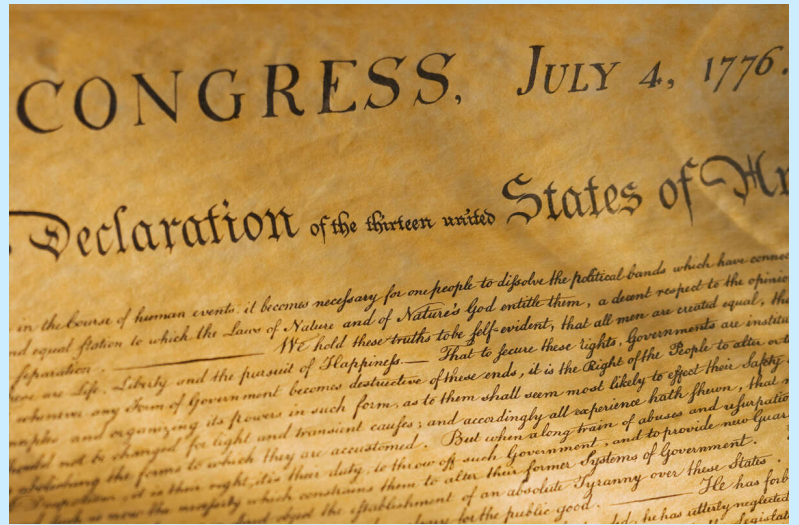 CONGRESS, JULY 4, 1776.
Declaration of the thirteen united States of
in the Course of human events, it becomes necessary for one people to dissolve the political bands which have
equal station to which the Laws of Nature and of Nature's God entitle them, a decent respect to the
separation. We hold these truths to be self-evident, that all men are created equal,
are Life, Liberty and the pursuit of Happiness.— That to secure these rights, Governments are
whenever any Form of Government becomes destructive of these ends, it is the Right of the People to alter or
and organizing its powers in such form, as to them shall seem most likely to effect their Safety
not be changed for light and transient causes; and accordingly all experience hath shewn, that
abolishing the forms to which they are accustomed. But when a long train of abuses and
it is their right, it is their duty, to throw off such Government, and to provide new
now the necessity which constrains them to alter their former Systems of Government.
object the establishment of an absolute Tyranny over these States.
for the public good. He has
he has utterly neglected